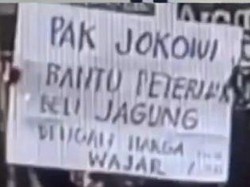 PAK JOKOWI
BANTU PETERNAK
BELI JAGUNG
DENGAN HARGA
WAJAR